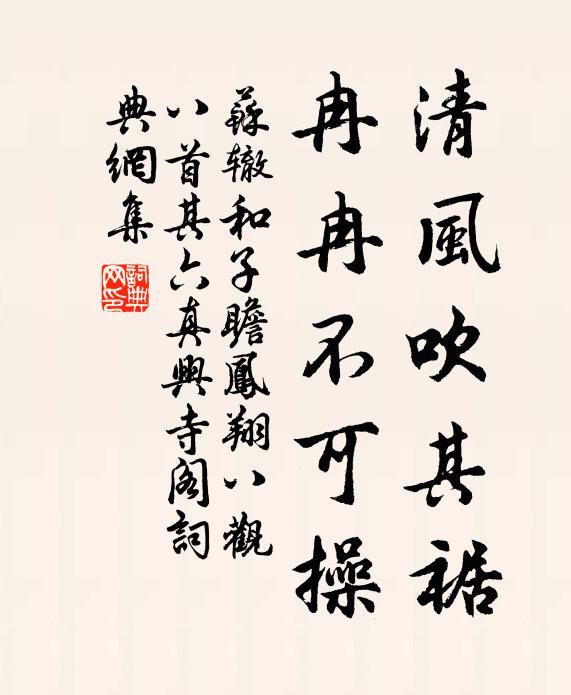 清風吹其裾
冉冉不可操
蘇辙和子瞻鳳翔八觀
八首其六真興寺閣詞
典網集
詞典网印